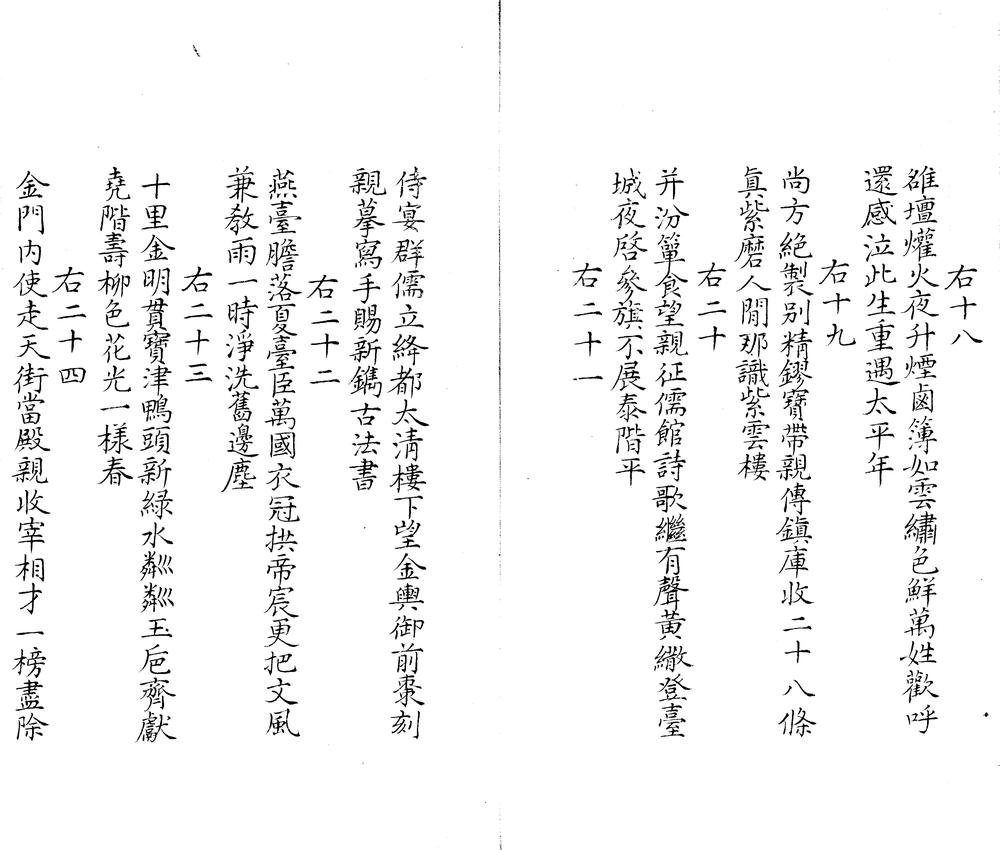 右十八
雒壇爟火夜升煙鹵簿如雲繡色鮮萬姓歡呼
還感泣此生重遇太平年
右十九
尚方絕製别精鏐寶帶親傳鎮庫收二十八條
眞紫磨人間那識紫雲樓
右二十
并汾簞食望親征儒館詩歌繼有聲黃繖登臺
城夜啓參旗不展泰階平
右二十一
侍宴群儒立絳都太淸樓下望金輿御前棗刻
親摹寫手賜新鐫古法書
右二十二
燕臺膽落夏臺臣萬國衣冠拱帝宸更把文風
兼教雨一時淨洗舊邊塵
右二十三
十里金明貫寶津鴨頭新綠水粼粼玉巵齊獻
堯階壽柳色花光一樣春
右二十四
金門内使走天街當殿親收宰相才一榜盡除